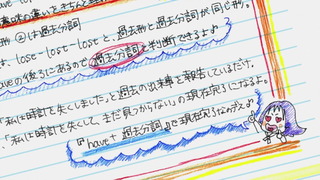 意味の違いをきちんと
形②は過去分詞
lost-lost-lostと、過去形と過去分詞が同じ形。
haveの後ろにあるので過去分詞と判断できるよ♪
「私は時計を失くしました」と過去の出来事を報告しているだけ。
「私は時計を失くして、まだ見つからない」の現在完了になるよ。
『have+過去分詞』で現在完了なのデス♪